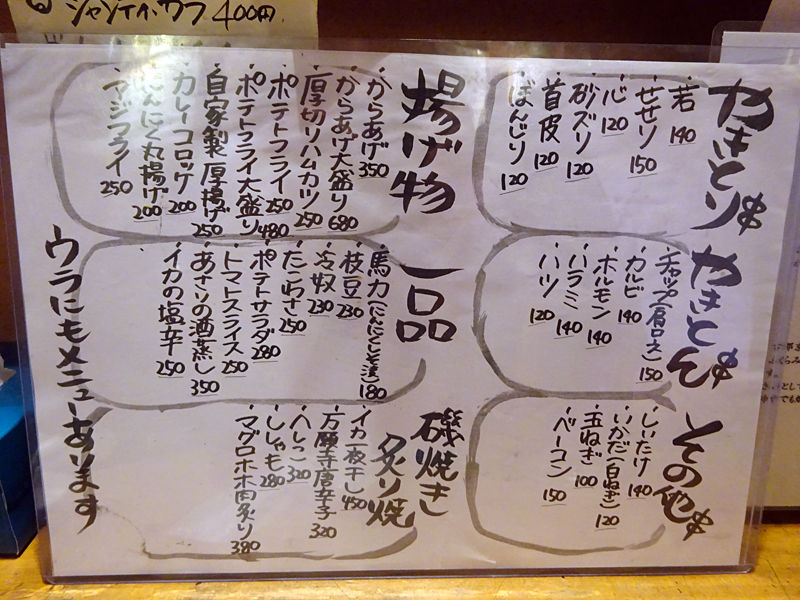 シャンティ・カフ 400円
やきとり串
・若 140
・せせり 150
・心 120
・砂ズリ 120
・首皮 120
・ぼんじり 120
やきとん串
・チャップ(肩ロース) 150
・カルビ 140
・ホルモン 140
・ハラミ 140
・ハツ 120
その他串
・しいたけ 140
・いかだ(白ねぎ) 120
・玉ねぎ 100
・ベーコン 150
揚げ物
・からあげ 350
・からあげ大盛り 680
・厚切りハムカツ 250
・ポテトフライ 250
・ポテトフライ大盛り 480
・自家製厚揚げ 250
・カレーコロッケ 200
・にんにく丸揚げ 200
・マジフライ 250
一品
・馬力(にんにくしそ漬) 180
・枝豆 230
・冷奴 230
・たこわさ 250
・ポテトサラダ 280
・トマトスライス 250
・あさりの酒蒸し 350
・イカの塩辛 250
磯焼き
炙り焼
・イカ一夜干し 450
・万願寺唐辛子 320
・へしこ 320
・ししゃも 280
・マグロホホ肉炙り 380
ウラにもメニューあります